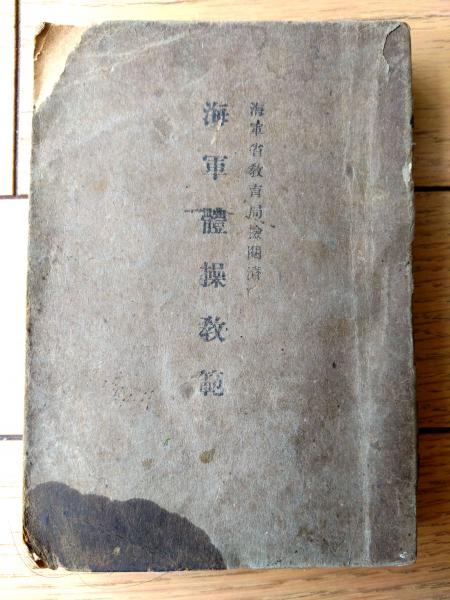 海軍省教育局檢閲濟
海軍體操教範